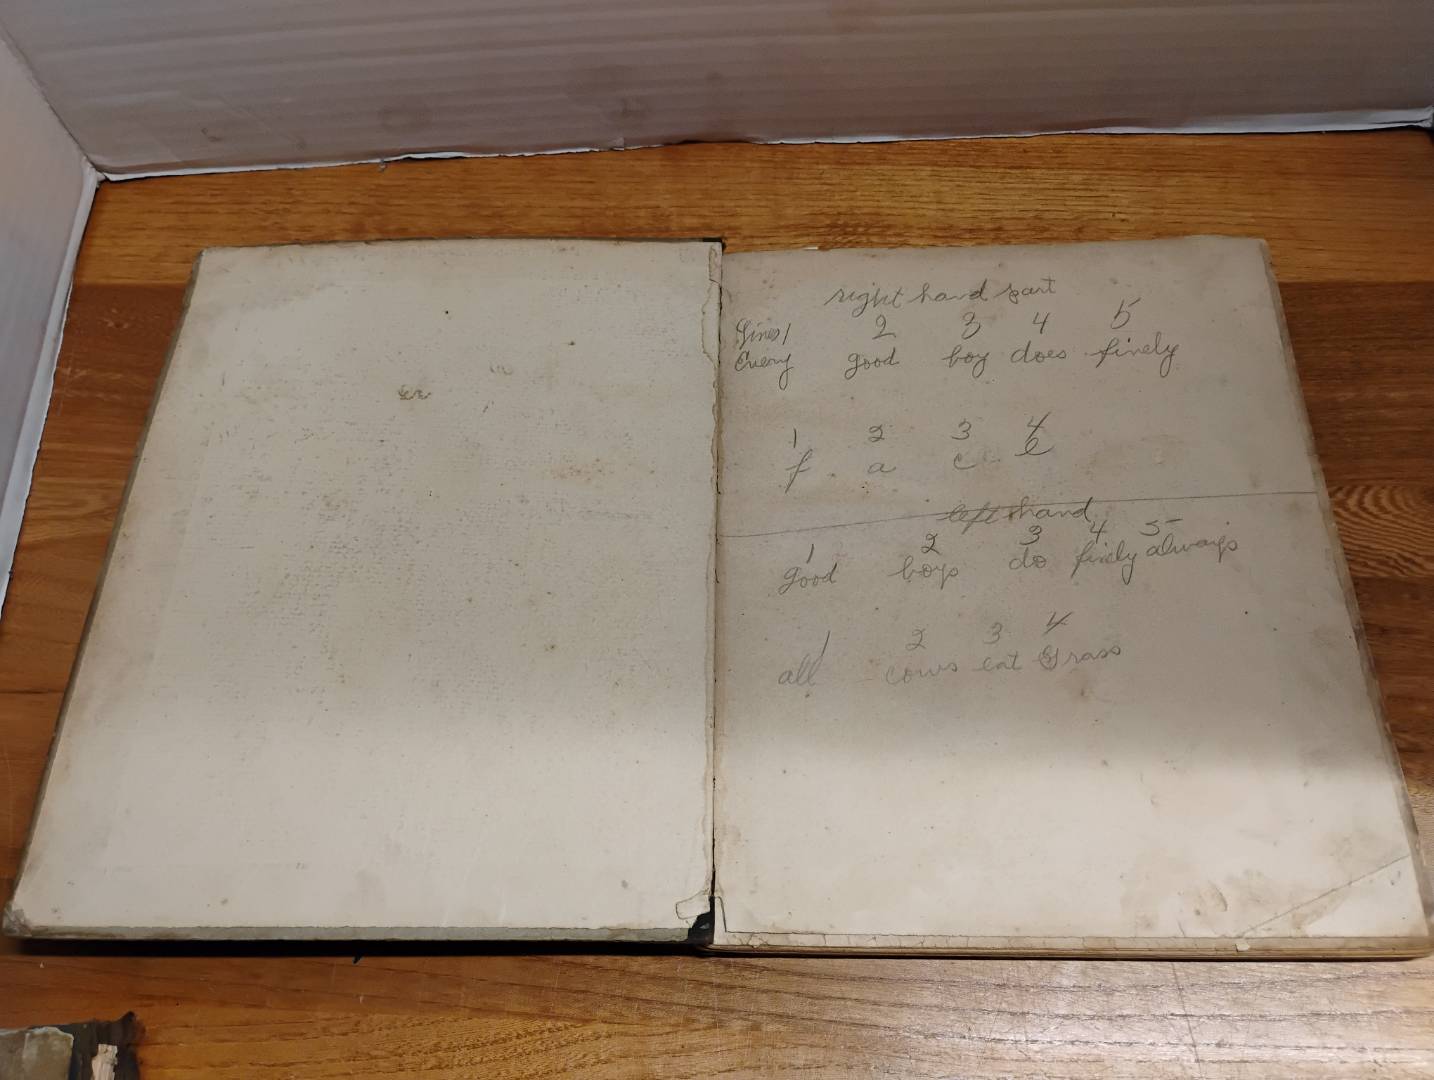 right hand part
Lines 1 2 3 4 5
Every good boy does finely
1 2 3 4
f a c e
left hand
1 2 3 4 5
good boys do finely always
1 2 3 4
all cows eat grass